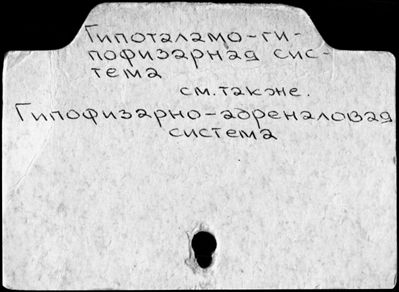 Гипоталамо-ги-
пофизарная сис-
тема
см. также.
Гипофизарно-адреналовая
система